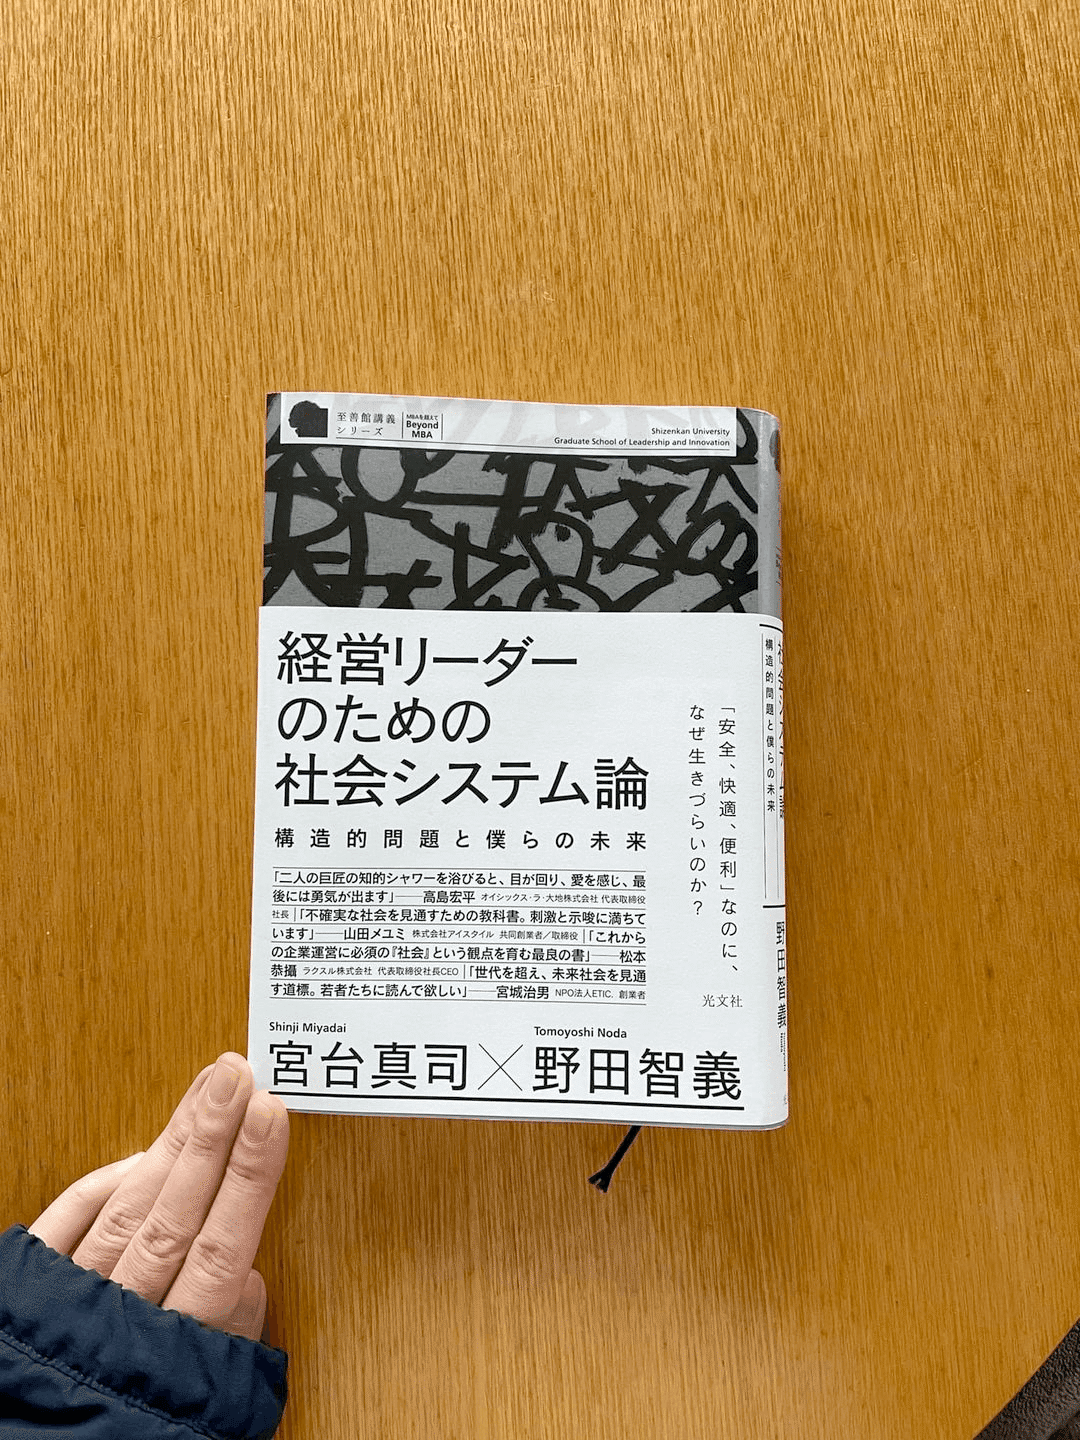 至善館講義
シリーズ
MBAを超えて
Beyond
MBA
Shizenkan University
Graduate School of Leadership and Innovation
経営リーダー
のための
社会システム論
構造的問題と僕らの未来
「安全、快適、便利」なのに、
なぜ生きづらいのか？
「二人の巨匠の知的シャワーを浴びると、目が回り、愛を感じ、最
後には勇気が出ます」──高島宏平 オイシックス・ラ・大地株式会社 代表取締役
社長｜「不確実な社会を見通すための教科書。刺激と示唆に満ちて
います」──山田メユミ 株式会社アイスタイル 共同創業者／取締役｜「これから
の企業運営に必須の『社会』という観点を育む最良の書」──松本
恭攝 ラクスル株式会社 代表取締役社長CEO｜「世代を超え、未来社会を見通
す道標。若者たちに読んで欲しい」──宮城治男 NPO法人ETIC. 創業者
光文社
Shinji Miyadai
Tomoyoshi Noda
宮台真司×野田智義
社会システム論
構造的問題と僕らの未来
野田智義